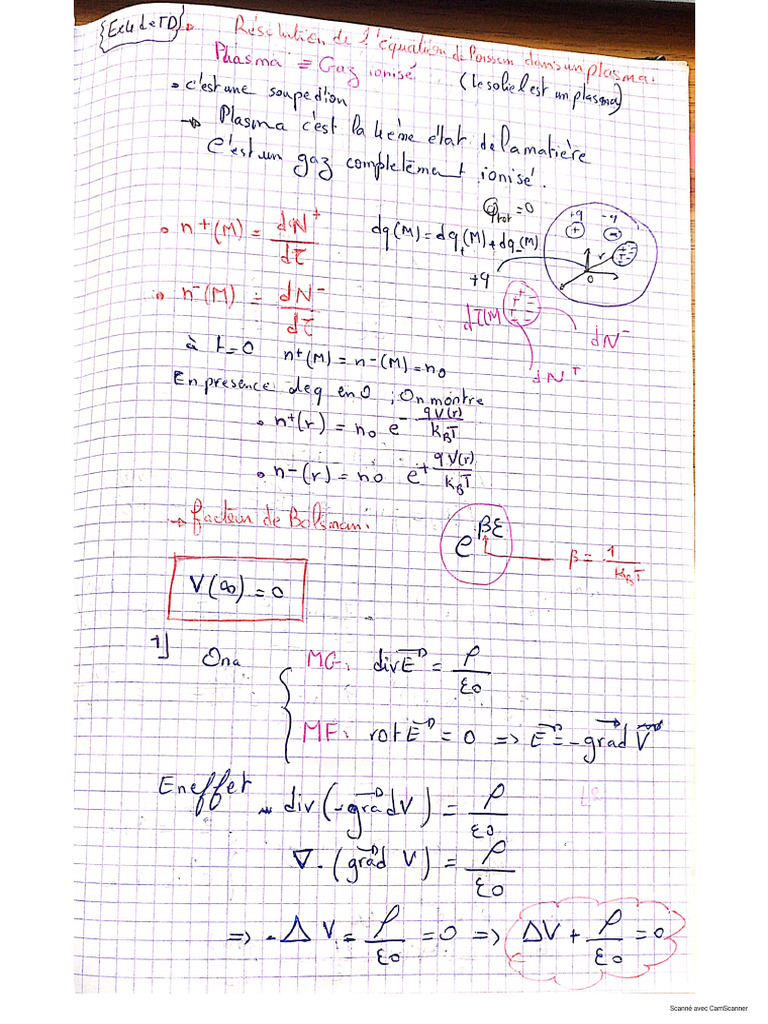 {Ex4 de TD}. Résolution de l'équation de Poisson dans un plasma.
Plasma = Gaz ionisé. (le soleil est un plasma)
• c'est une soupe d'ion
→ Plasma c'est la 4ème état de la matière
c'est un gaz complètement ionisé.
Qtot = 0
+q -q
+ -
• n+(M) = dN+/dτ dq(M) = dq+(M) + dq-(M)
r
0
+q
• n-(M) = dN-/dτ
dτ(M
dN-
dN+
à t=0 n+(M) = n-(M) = n0
En presence de q en 0 ; On montre
• n+(r) = n0 e^- qV(r)/kBT
• n-(r) = n0 e^+ qV(r)/kBT
→ facteur de Bolsman:
e^βε β = 1/kBT
V(∞) = 0
1] On a MG: div E = ρ/ε0
MF: rot E = 0 => E = -grad V
En effet div(-grad V) = ρ/ε0
∇.(grad V) = ρ/ε0
=> -ΔV = ρ/ε0 = 0 => ΔV + ρ/ε0 = 0
Scanné avec CamScanner